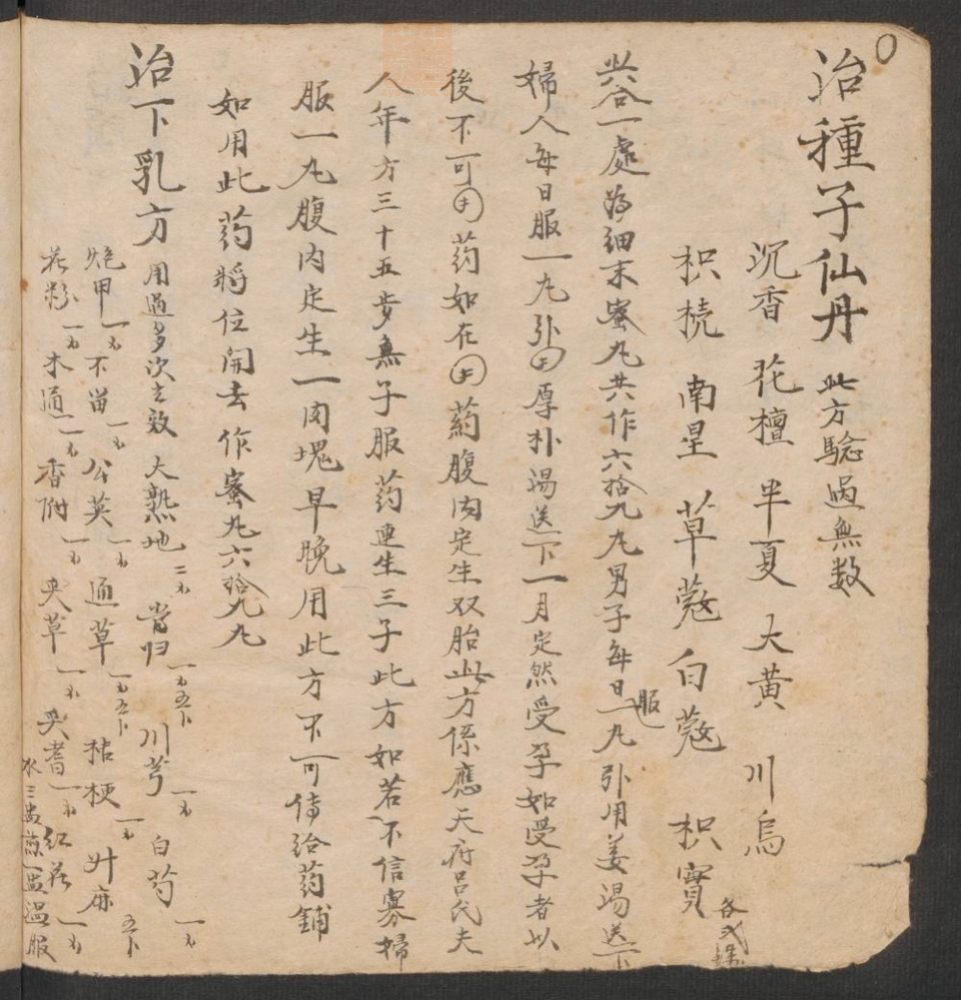 治種子仙丹 此方驗過無数
沉香 花檀 半夏 大黄 川烏
枳梡 南星 草蔻 白蔻 枳實 各弍錢
共合一處為細末蜜丸共作六拾九丸男子每日服一丸引用姜湯送下
婦人每日服一丸引用厚朴湯送下一月定然受孕如受孕者以
後不可用药如在用药腹内定生双胎此方係應天府吕氏夫
人年方三十五步無子服药連生三子此方如若不信寡婦
服一丸腹内定生一肉塊早晚用此方不可傳給药鋪
如用此药將位開去作蜜丸六拾九丸
治下乳方 用過多次立效 大熟地二 當归 川芎一 白芍一
炮甲一 不留一 公英一 通草 桔梗一 升麻
花粉一 木通一 香附一 艸草一 耆一 红花一
水三盅煎一盅温服